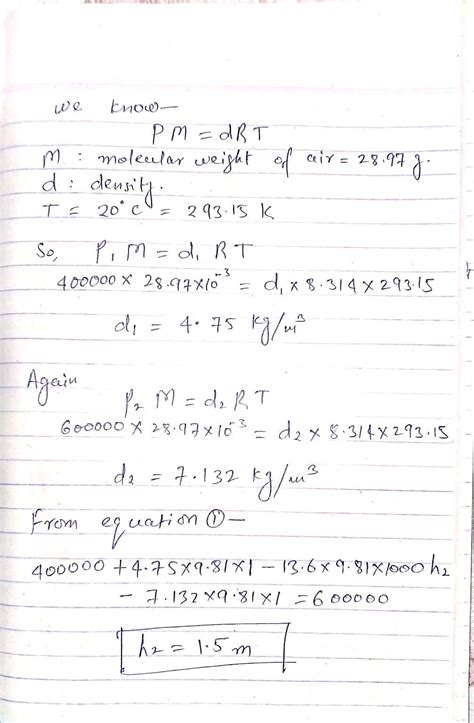 we know—
PM = dRT
M : moleular weight of air = 28.97 g.
d : density.
T = 20°C = 293.15 K
So, P₁ M = d₁ RT
400000 × 28.97×10⁻³ = d₁ × 8.314 × 293.15
d₁ = 4.75 kg/m³
Again
P₂ M = d₂ RT
600000 × 28.97×10⁻³ = d₂ × 8.314×293.15
d₂ = 7.132 kg/m³
From equation ①—
400000 + 4.75×9.81×1 – 13.6×9.81×1000 h₂
– 7.132×9.81×1 = 600000
h₂ = 1.5 m